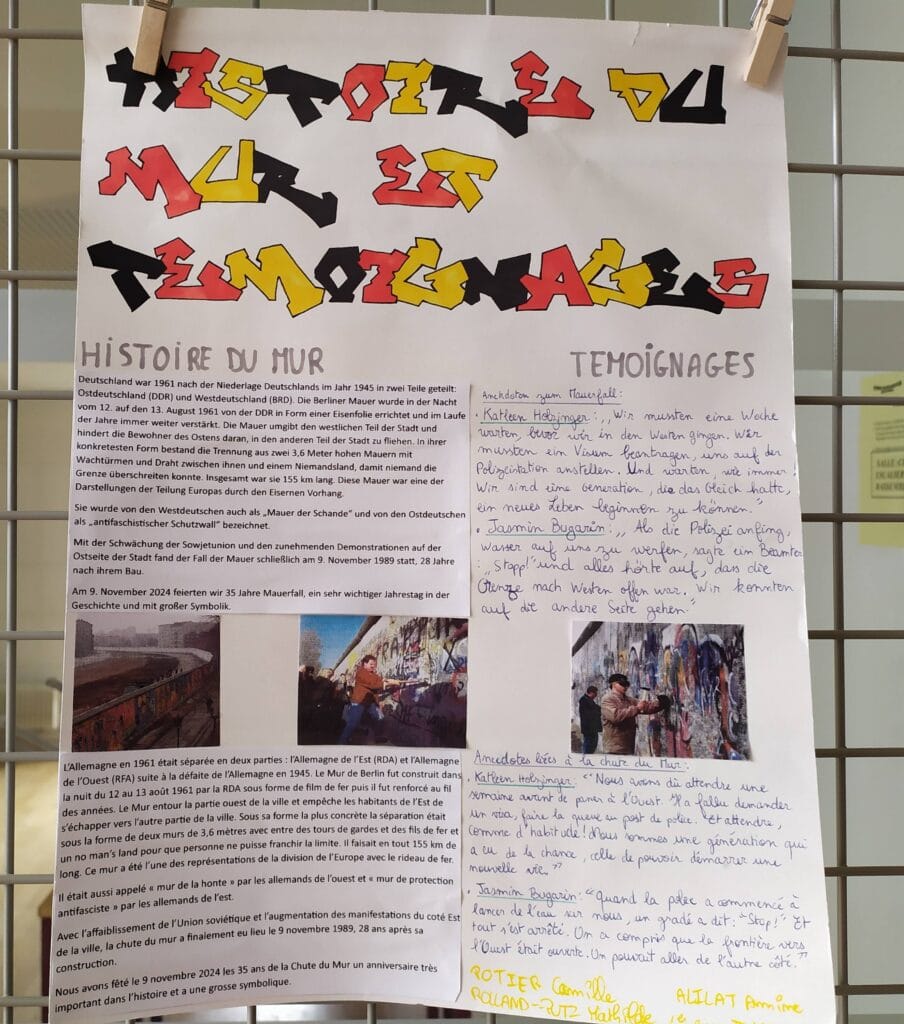 HISTOIRE DU
MUR ET
TEMOIGNAGES
HISTOIRE DU MUR
Deutschland war 1961 nach der Niederlage Deutschlands im Jahr 1945 in zwei Teile geteilt:
Ostdeutschland (DDR) und Westdeutschland (BRD). Die Berliner Mauer wurde in der Nacht
vom 12. auf den 13. August 1961 von der DDR in Form einer Eisenfolie errichtet und im Laufe
der Jahre immer weiter verstärkt. Die Mauer umgibt den westlichen Teil der Stadt und
hindert die Bewohner des Ostens daran, in den anderen Teil der Stadt zu fliehen. In ihrer
konkretesten Form bestand die Trennung aus zwei 3,6 Meter hohen Mauern mit
Wachtürmen und Draht zwischen ihnen und einem Niemandsland, damit niemand die
Grenze überschreiten konnte. Insgesamt war sie 155 km lang. Diese Mauer war eine der
Darstellungen der Teilung Europas durch den Eisernen Vorhang.
Sie wurde von den Westdeutschen auch als „Mauer der Schande" und von den Ostdeutschen
als „antifaschistischer Schutzwall" bezeichnet.
Mit der Schwächung der Sowjetunion und den zunehmenden Demonstrationen auf der
Ostseite der Stadt fand der Fall der Mauer schließlich am 9. November 1989 statt, 28 Jahre
nach ihrem Bau.
Am 9. November 2024 feierten wir 35 Jahre Mauerfall, ein sehr wichtiger Jahrestag in der
Geschichte und mit großer Symbolik.
L'Allemagne en 1961 était séparée en deux parties : l'Allemagne de l'Est (RDA) et l'Allemagne
de l'Ouest (RFA) suite à la défaite de l'Allemagne en 1945. Le Mur de Berlin fut construit dans
la nuit du 12 au 13 août 1961 par la RDA sous forme de film de fer puis il fut renforcé au fil
des années. Le Mur entoure la partie ouest de la ville et empêche les habitants de l'Est de
s'échapper vers l'autre partie de la ville. Sous sa forme la plus concrète la séparation était
sous la forme de deux murs de 3,6 mètres avec entre des tours de gardes et des fils de fer et
un no man's land pour que personne ne puisse franchir la limite. Il faisait en tout 155 km de
long. Ce mur a été l'une des représentations de la division de l'Europe avec le rideau de fer.
Il était aussi appelé « mur de la honte » par les allemands de l'ouest et « mur de protection
antifasciste » par les allemands de l'est.
Avec l'affaiblissement de l'Union soviétique et l'augmentation des manifestations du coté Est
de la ville, la chute du mur a finaiement eu lieu le 9 novembre 1989, 28 ans après sa
construction.
Nous avons fêté le 9 novembre 2024 les 35 ans de la Chute du Mur un anniversaire très
important dans l'histoire et a une grosse symbolique.
TEMOIGNAGES
Anekdoten zum Mauerfall:
· Katleen Holzinger: „Wir mussten eine Woche
warten, bevor wir in den Westen gingen. Wir
mussten ein Visum beantragen, uns auf der
Polizeistation anstellen. Und warten, wie immer
Wir sind eine Generation, die das Gleich hatte,
ein neues Leben beginnen zu können."
· Jasmin Bugarin: „Als die Polizei anfing,
Wasser auf uns zu werfen, sagte ein Beamter
: „Stopp!" und alles hörte auf, dass die
Grenze nach Westen offen war. Wir konnten
auf die andere Seite gehen."
Anecdotes liées à la chute du Mur:
· Katleen Holzinger: "Nous avons dû attendre une
semaine avant de passer à l'Ouest. Il a fallu demander
un visa, faire la queue au post de police. Et attendre,
comme d'habitude! Nous sommes une génération qui
a eu de la chance, celle de pouvoir démarrer une
nouvelle vie."
· Jasmin Bugarin: "Quand la police a commencé à
lancer de l'eau sur nous, un gradé a dit: "Stop!" Et
tout s'est arrêté. On a compris que la frontière vers
l'Ouest était ouverte. On pouvait aller de l'autre côté."
POTIER Camille
ROLLAND--PUTZ Mathilde
ALILAT Annime